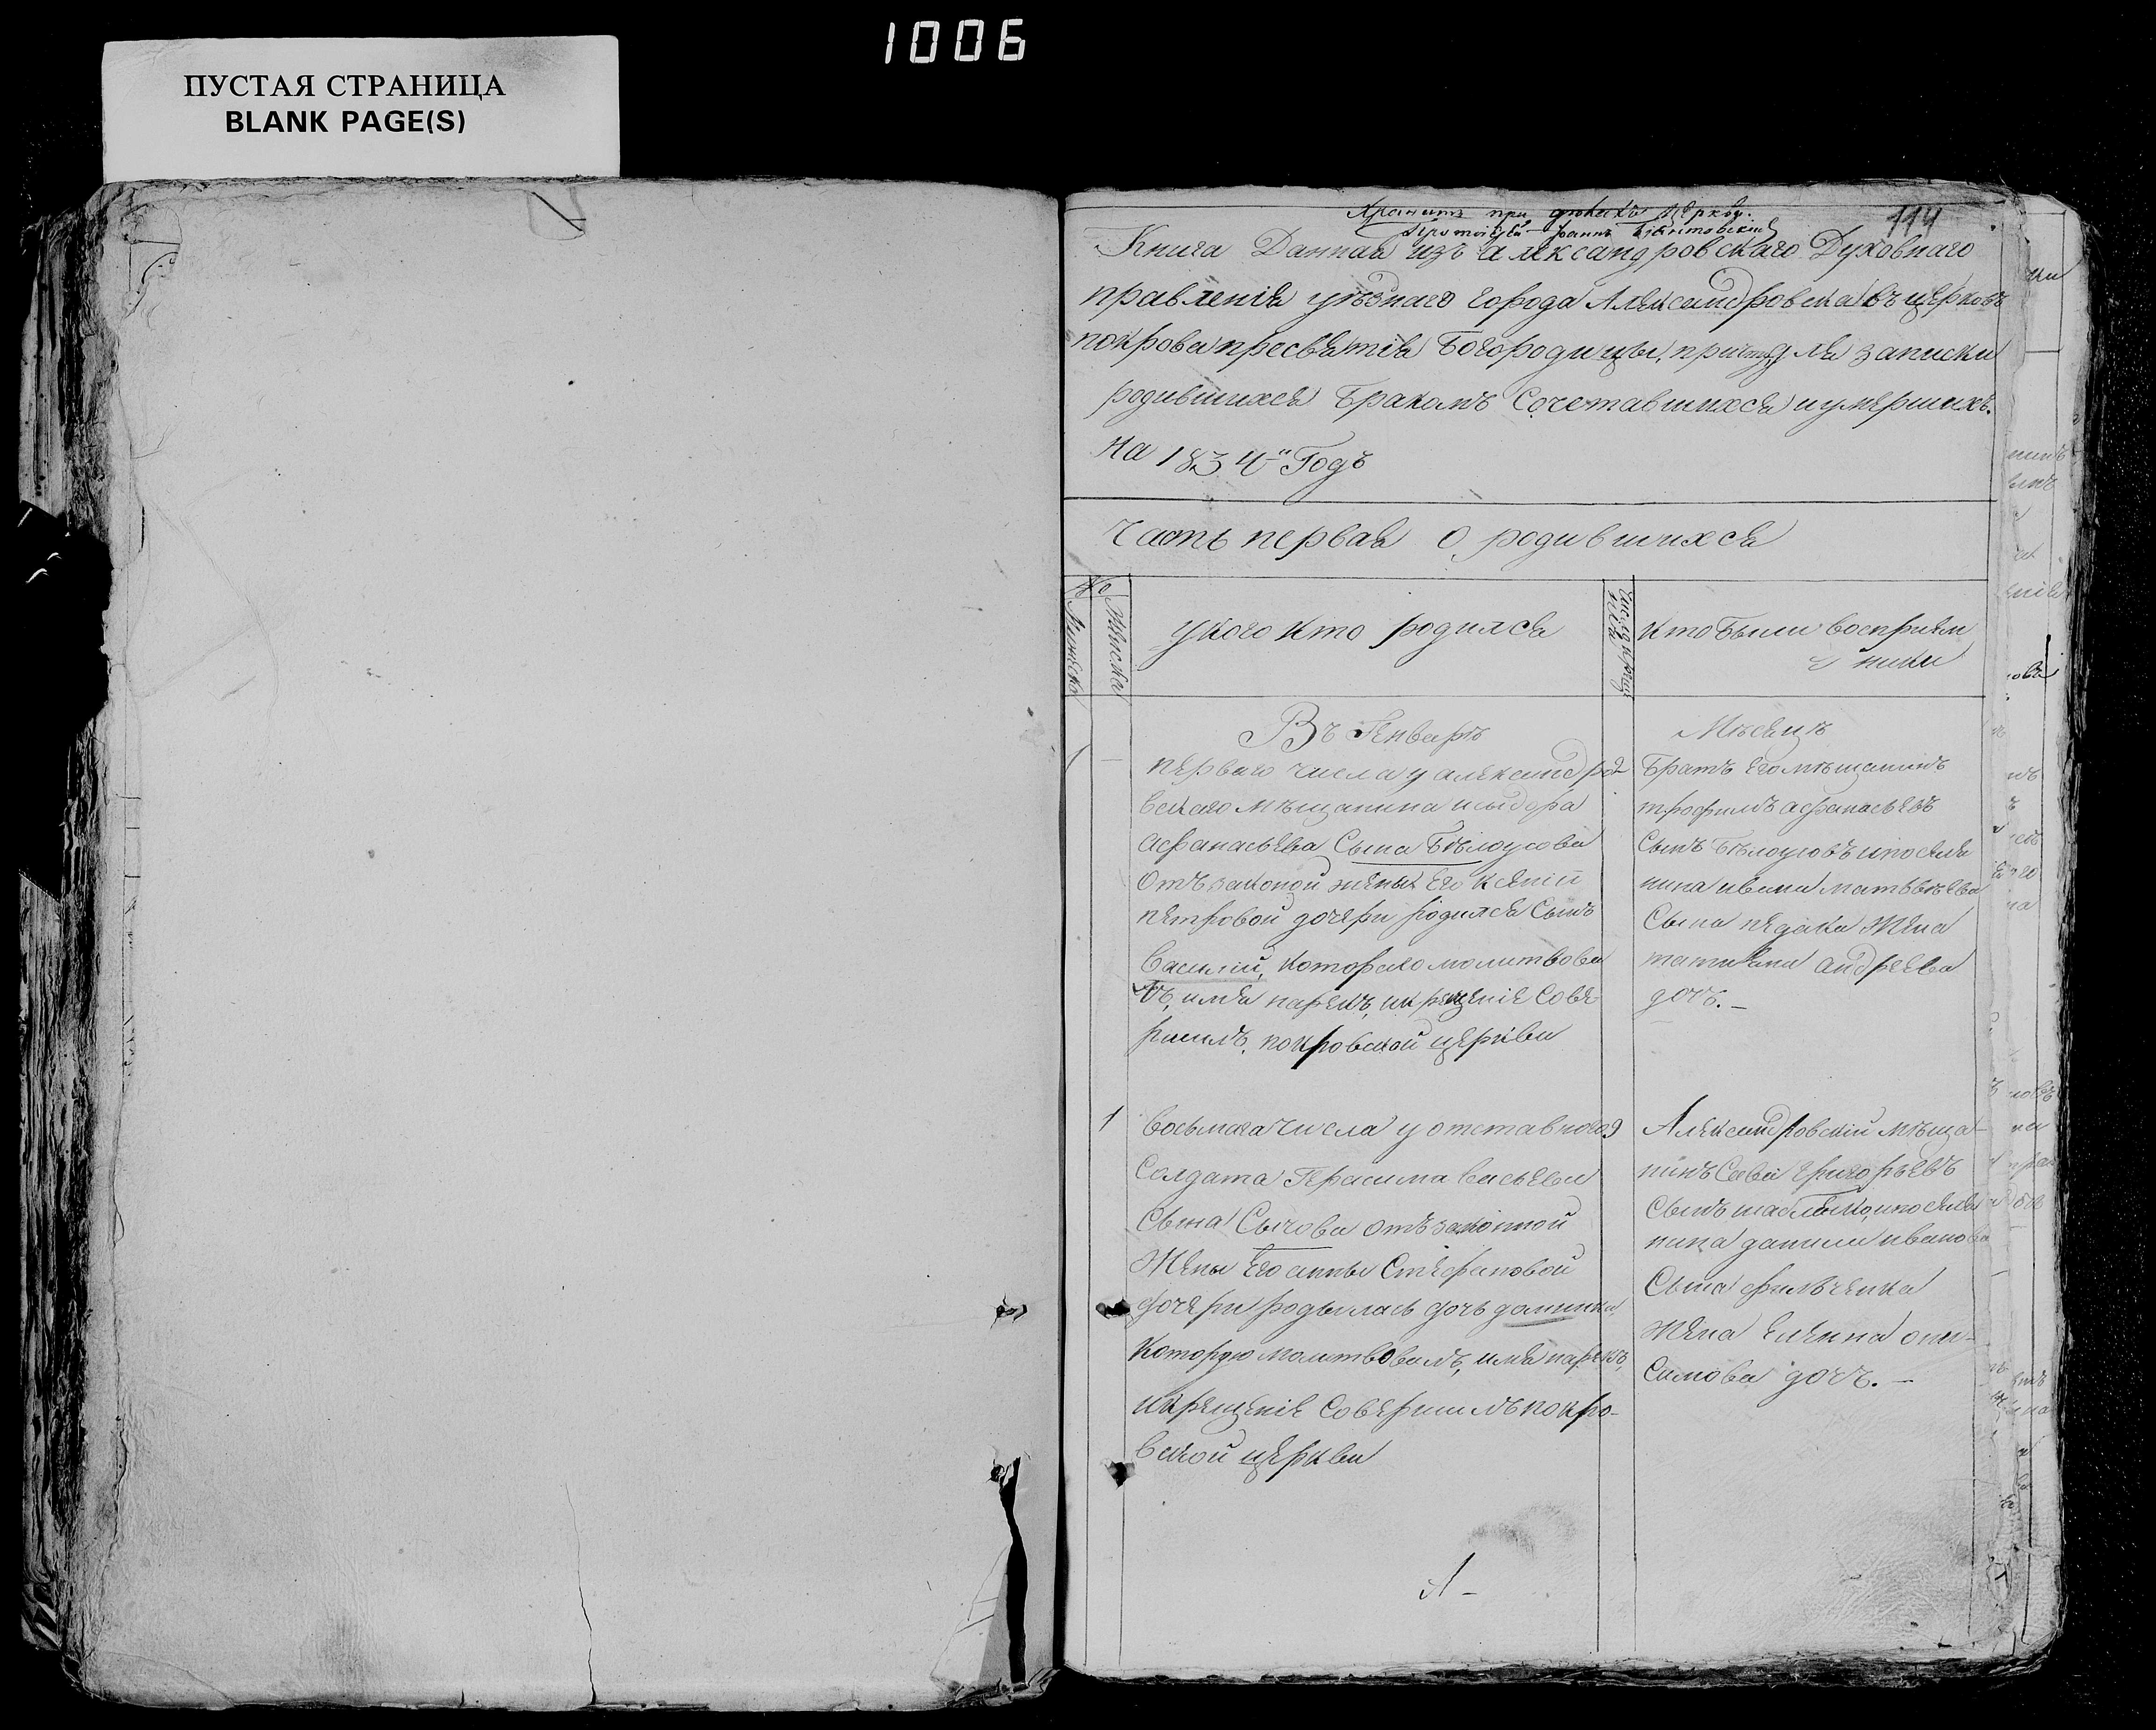 1006
ПУСТАЯ СТРАНИЦА
BLANK PAGE(S)
Хранить при дѣлахъ Церкви.
114
Книга Данная изъ александровскаго Духовнаго
правленія уѣзнаго города Александровска въ церковь
покрова пресвятія Богородицы, для записки
родившихся Бракомъ Сочетавшихся и умершихъ.
на 1834-й Годъ
Часть первая О родившихся
№
Мужеска
Женска
у кого кто родился
кто были восприем
ники
Въ Генварѣ
Мѣсяцѣ
1 —
первого числа у александро
2
вскаго мѣщанина исыдора
афанасьева Сына Бѣлоусова
Отъ законой жены Его Ксеніи
петровой дочери родился Сынъ
Василій, котораго молитвова
лъ, имя нарекъ, и крещеніе Сове
ршилъ, покровской церкви
Братъ Его мѣщанинъ
трофимъ афанасьевъ
Сынъ Бѣлоусовъ и поселя
нина ивана матвѣева
Сына педака Жена
татияна андреева
дочь. —
1
Восьмага числа у отставного
9
Солдата Герасима Васьева
Сына Сычова отъ законной
Жены Его анны Стефановой
дочери родылась дочь домника,
Которую молитвовалъ, имя нарекъ,
и крещеніе Совершилъ покро-
вской церкви
Александровскій мѣща-
нинъ Сава григорьевъ
Сынъ и поселя
нина данила иванова
Сына филѣченка
жена Елена они-
симова дочь. —